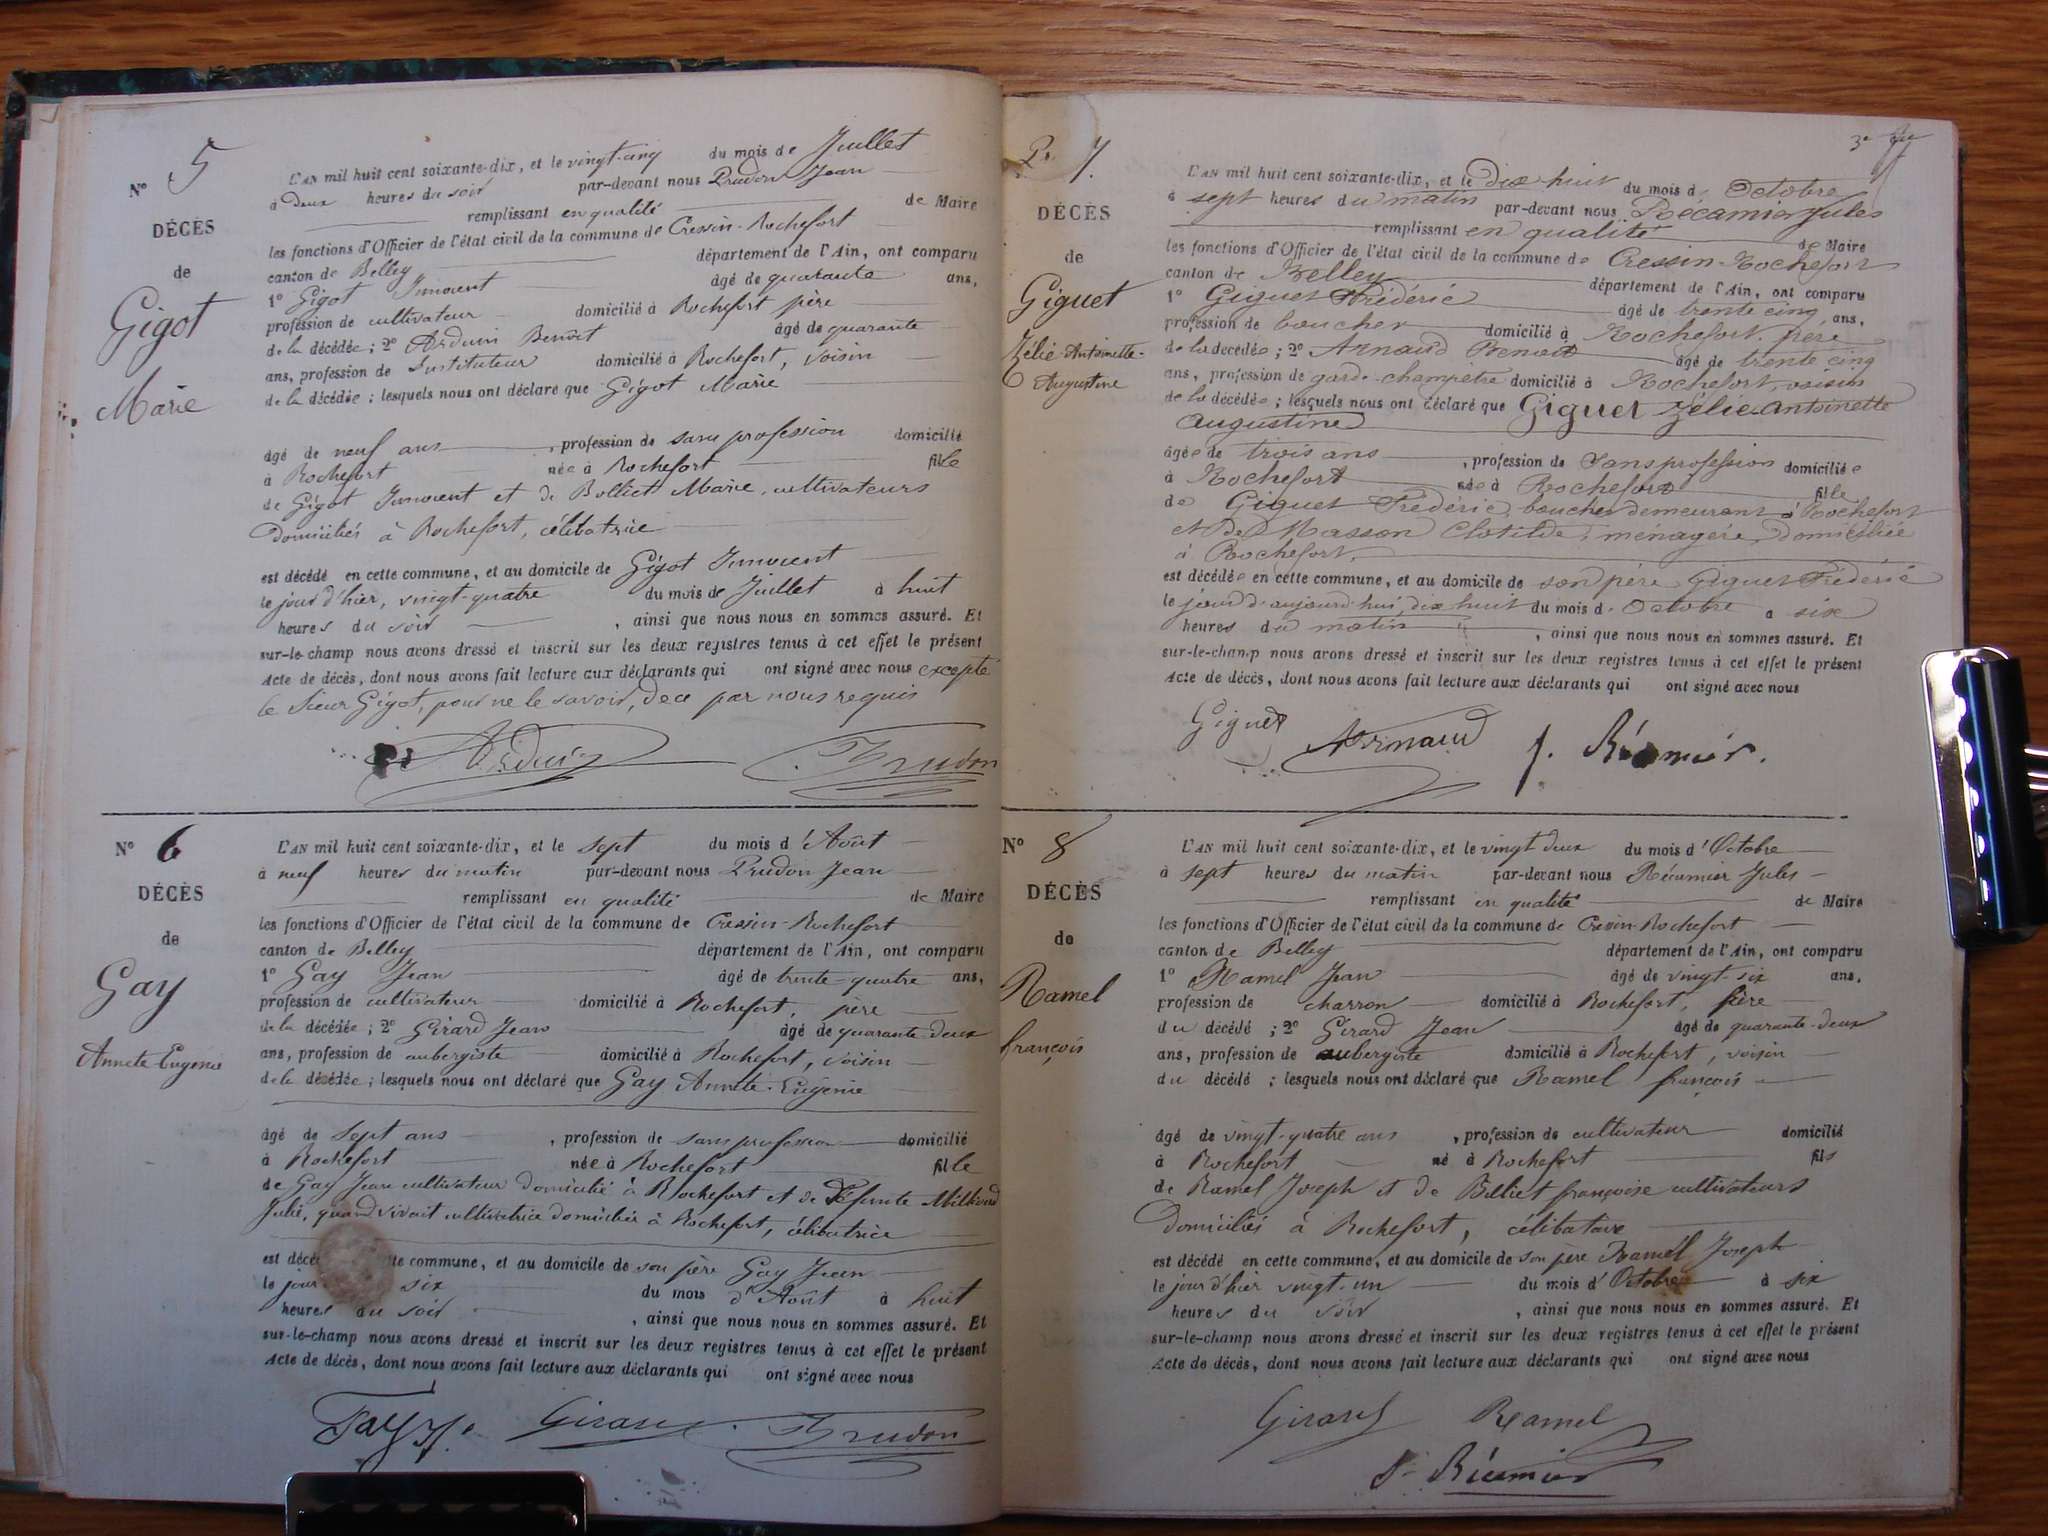 N° 5
DÉCÈS
de
Gigot
Marie
L'AN mil huit cent soixante-dix, et le vingt-cinq du mois de Juillet
à deux heures du soir par-devant nous Prudon Jean
remplissant en qualité de Maire
les fonctions d'Officier de l'état civil de la commune de Cressin-Rochefort
canton de Belley département de l'Ain, ont comparu
1° Gigot Innocent âgé de quarante ans,
profession de cultivateur domicilié à Rochefort père
de la décédée ; 2° Arduin Benoît âgé de quarante
ans, profession de Instituteur domicilié à Rochefort, voisin
de la décédée ; lesquels nous ont déclaré que Gigot Marie
âgé de neuf ans , profession de sans profession domicilié
à Rochefort née à Rochefort fille
de Gigot Innocent et de Bolliet Marie, cultivateurs
domiciliés à Rochefort, célibatrice
est décédé en cette commune, et au domicile de Gigot Innocent
le jour d'hier, vingt-quatre du mois de Juillet à huit
heures du soir , ainsi que nous nous en sommes assuré. Et
sur-le-champ nous avons dressé et inscrit sur les deux registres tenus à cet effet le présent
Acte de décès, dont nous avons fait lecture aux déclarants qui ont signé avec nous excepté
le sieur Gigot, pour ne le savoir, de ce par nous requis
Arduin Prudon
N° 6
DÉCÈS
de
Gay
Annete Eugenie
L'AN mil huit cent soixante-dix, et le sept du mois d'Août
à neuf heures du matin par-devant nous Prudon Jean
remplissant en qualité de Maire
les fonctions d'Officier de l'état civil de la commune de Cressin-Rochefort
canton de Belley département de l'Ain, ont comparu
1° Gay Jean âgé de trente-quatre ans,
profession de cultivateur domicilié à Rochefort, père
de la décédée ; 2° Girard Jean âgé de quarante-deux
ans, profession de aubergiste domicilié à Rochefort, voisin
de la décédée ; lesquels nous ont déclaré que Gay Annete-Eugénie
âgé de sept ans , profession de sans profession domicilié
à Rochefort née à Rochefort fille
de Gay Jean cultivateur domicilié à Rochefort et de défunte
Julie, quand vivait cultivatrice domiciliée à Rochefort, célibatrice
est décé commune, et au domicile de son père Gay Jean
le jour six du mois d'Août à huit
heures du soir , ainsi que nous nous en sommes assuré. Et
sur-le-champ nous avons dressé et inscrit sur les deux registres tenus à cet effet le présent
Acte de décès, dont nous avons fait lecture aux déclarants qui ont signé avec nous
Gay Girard Prudon
3e
7.
DÉCÈS
de
Giguet
Zélie-Antoinette-
Augustine
L'AN mil huit cent soixante-dix, et le dix huit du mois d Octobre
à sept heures du matin par-devant nous Récamier Jules
remplissant en qualité de Maire
les fonctions d'Officier de l'état civil de la commune de Cressin-Rochefort
canton de Belley département de l'Ain, ont comparu
1° Giguet Frédéric âgé de trente cinq ans,
profession de boucher domicilié à Rochefort père
de la décédée ; 2° Arnaud Benoit âgé de trente cinq
ans, profession de garde-champêtre domicilié à Rochefort, voisin
de la décédée ; lesquels nous ont déclaré que Giguet Zélie Antoinette
Augustine
âgée de trois ans , profession de Sans profession domiciliée
à Rochefort née à Rochefort fille
de Giguet Frédéric, boucher demeurant à Rochefort
et de Masson Clotilde, ménagère, domiciliée
à Rochefort.
est décédée en cette commune, et au domicile de son père Giguet Frédéric
le jour d'aujourd'hui, dix huit du mois d Octobre à six
heures du matin , ainsi que nous nous en sommes assuré. Et
sur-le-champ nous avons dressé et inscrit sur les deux registres tenus à cet effet le présent
Acte de décès, dont nous avons fait lecture aux déclarants qui ont signé avec nous
Giguet Arnaud J. Récamier.
N° 8
DÉCÈS
de
Ramel
françois
L'AN mil huit cent soixante-dix, et le vingt deux du mois d'Octobre
à sept heures du matin par-devant nous Récamier Jules
remplissant en qualité de Maire
les fonctions d'Officier de l'état civil de la commune de Cressin-Rochefort
canton de Belley département de l'Ain, ont comparu
1° Ramel Jean âgé de vingt-six ans,
profession de charron domicilié à Rochefort, frère
du décédé ; 2° Girard Jean âgé de quarante-deux
ans, profession de aubergiste domicilié à Rochefort, voisin
du décédé ; lesquels nous ont déclaré que Ramel françois
âgé de vingt-quatre ans , profession de cultivateur domicilié
à Rochefort né à Rochefort fils
de Ramel Joseph et de Billiet françoise cultivateurs
domiciliés à Rochefort, célibataire
est décédé en cette commune, et au domicile de son père Ramel Joseph
le jour d'hier vingt-un du mois d'Octobre à six
heures du soir , ainsi que nous nous en sommes assuré. Et
sur-le-champ nous avons dressé et inscrit sur les deux registres tenus à cet effet le présent
Acte de décès, dont nous avons fait lecture aux déclarants qui ont signé avec nous
Girard Ramel
J. Récamier